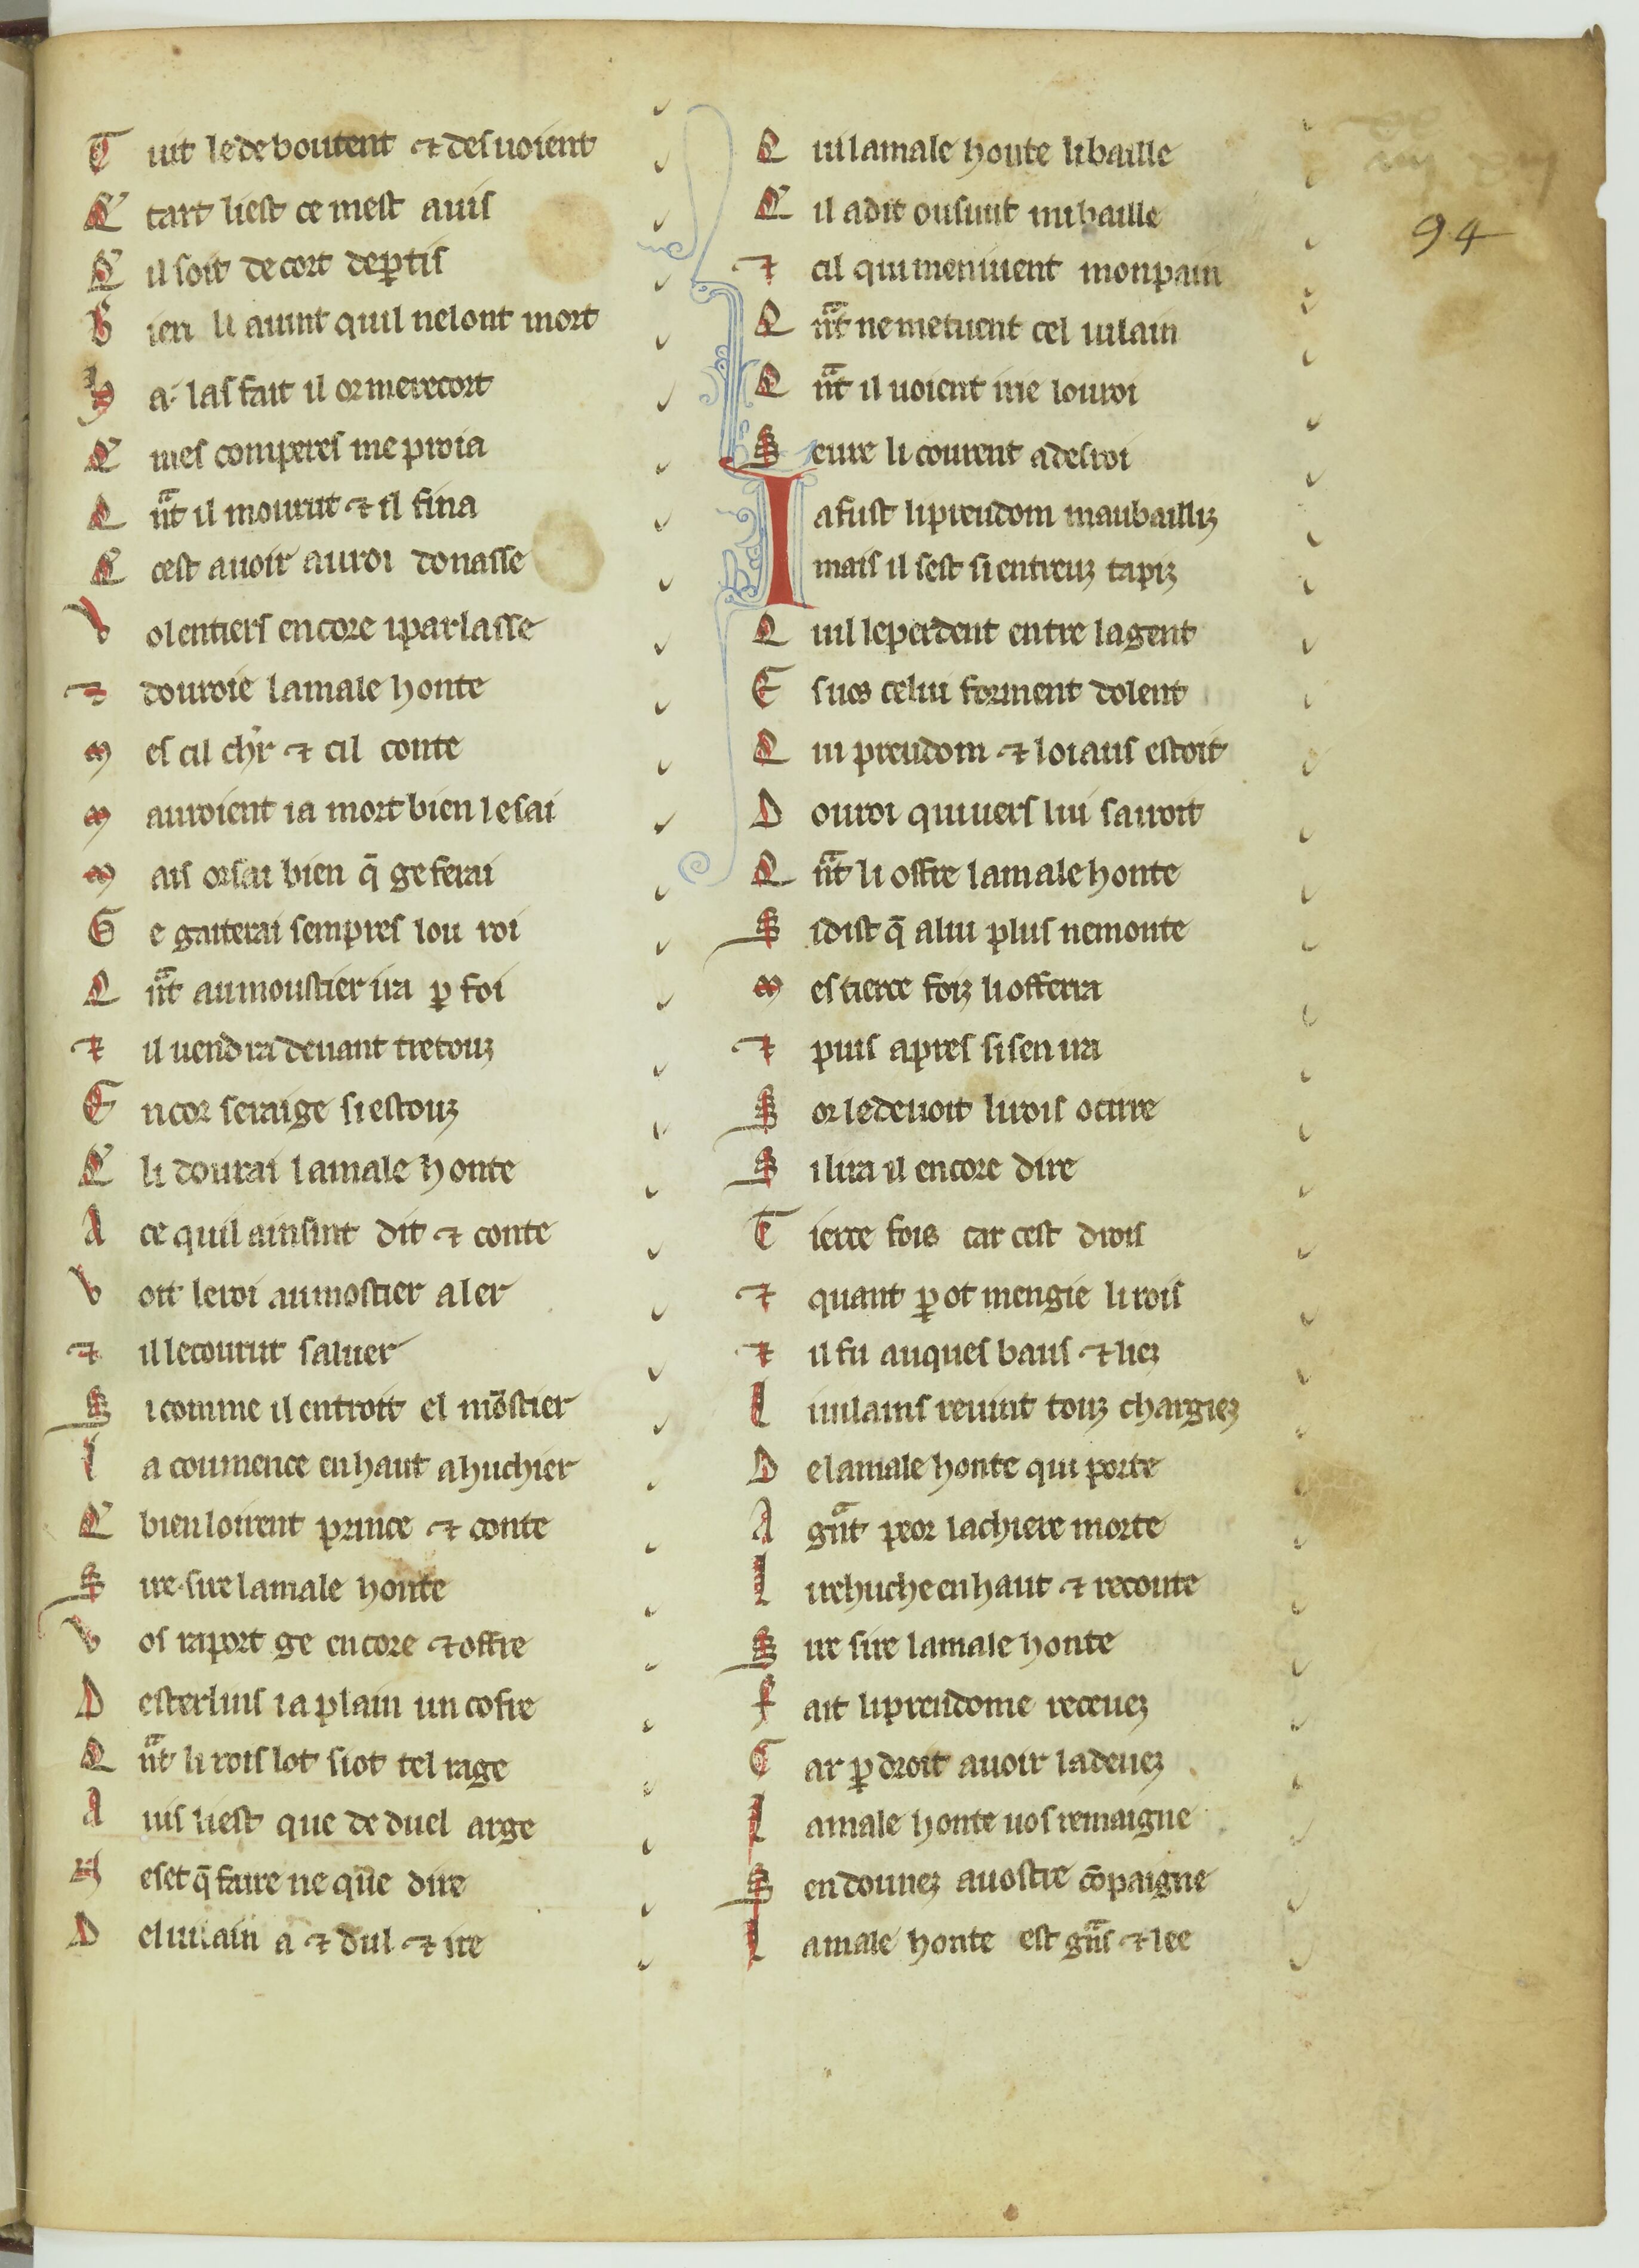 Tuit le de boutent ⁊ desuoient
Q tart li est ce mest auis
Q il soit de cort deptis
Bien li auint quil nelont mort
ha· las fait il or me recort
Q mes comperes me proia
Qnt il mourut ⁊ il fina
Q cest auoir au roi donasse
Volentiers encore iparlasse
⁊ douroie la male honte
Mes cil chr ⁊ cil conte
Mauroient ia mort bien le sai
Mais or sai bien q̄ ge ferai
Ge gaiterai sempres lou roi
Qnt au moustier ira p foi
⁊ il uendra deuant tretouz
Encor seraige si estouz
Q li dourai la male honte
A ce quil ainsint dit ⁊ conte
Voit le roi au mostier aler
⁊ il le courut saluer
Si comme il entroit el mōstier
La coumence en haut a huchier
Q bien loirent prince ⁊ conte
Sire·sire la male honte
Vos raport ge encore ⁊ offre
Desterlins ia plain un cofre
Qnt li rois lot si ot tel rage
Auis li est que de duel arge
Ne set q̄ faire ne que dire
Del uilain a ⁊ dul ⁊ ire
Qui la male honte li baille
Q il a dit ou sunt mi baille
⁊ cil qui meniuent mon pain
Qnt ne metuent cel uilain
Qnt il uoient irie lou roi
Seure li courent a desroi
Ia fust li preudom maubailliz
mais il sest si entreuz tapiz
Quil le perdent entre la gent
E suos celui forment dolent
Qui preudom ⁊ loiaus estoit
Dou roi qui uers lui sauoit
Qnt li offre la male honte
Si dist q̄ a lui plus ne monte
Mes tierce foiz li offerra
⁊ puis apres si sen ira
S or le deuoit li rois ocirre
Si lira il encore dire
Tierce fois car cest drois
⁊ quant p ot mengie li rois
⁊ il fu auques baus ⁊ liez
Li uilains reuint touz chargiez
De la male honte qui porte
A gnt peor la chiere morte
Li rehuche en haut ⁊ reconte
Sire sire la male honte
Fait li preudome receuez
Car p droit auoir la deuez
La male honte uos remaigne
Sen dounez a uostre cōpaigne
La male honte est gns ⁊ lee
94